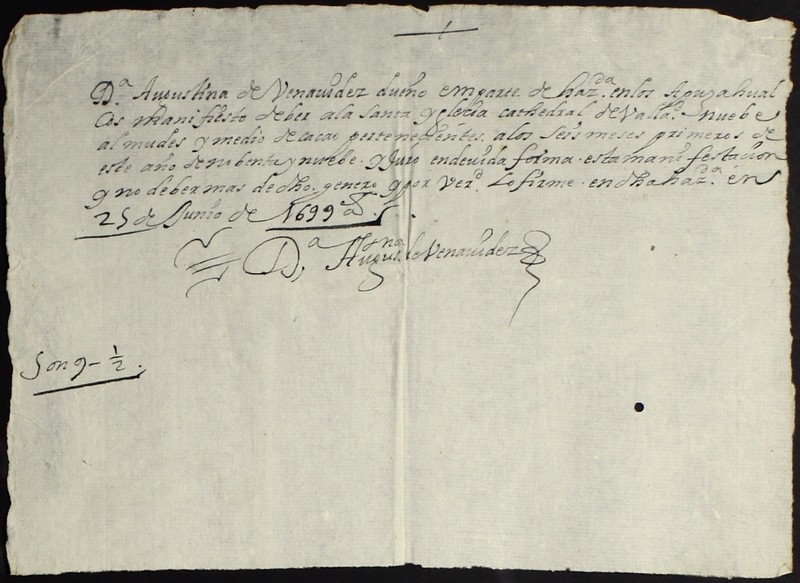 D.ª Augustina de Venauidez dueño emparte de haz.da en los Apuzahual
cos manifiesto deber ala Santa Yglecia cathedral de Vall.d nuebe
almudes y medio de cacao pertenecientes alos seis meses primeros de
este año de nobenta y nuebe y Juro endeuida forma esta manifestacion
y no deber mas de dho genero y por ver.d lo firme en dha haz.da en
25 de Junio de 1699 a.s
D.ª Augus.tina de Venauidez
Son 9 - 1/2